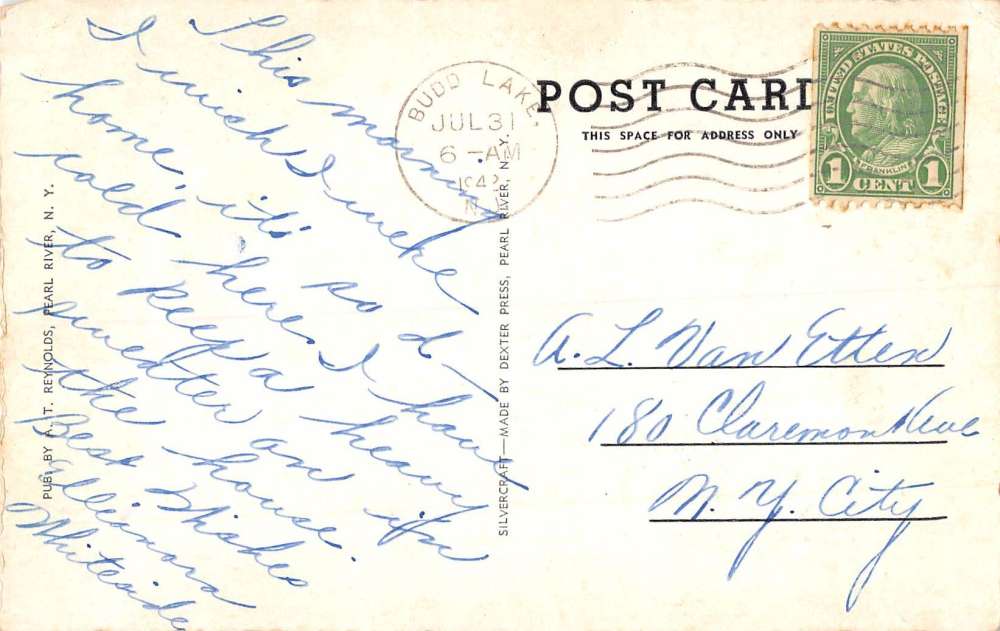 This morning
I wish I were
home, it's so d-
cold here. I have
to keep a heavy
sweater on in
the house.
Best Wishes
Ellionora
Whiteside
PUB. BY A. T. REYNOLDS, PEARL RIVER, N. Y.
SILVERCRAFT—MADE BY DEXTER PRESS, PEARL RIVER, N. Y.
BUDD LAKE,
JUL 31
6-AM
194
N.
POST CARD
THIS SPACE FOR ADDRESS ONLY
UNITED STATES POSTAGE
FRANKLIN
1 CENT 1
A. L. Van Etten
180 Claremont Ave
N. Y. City